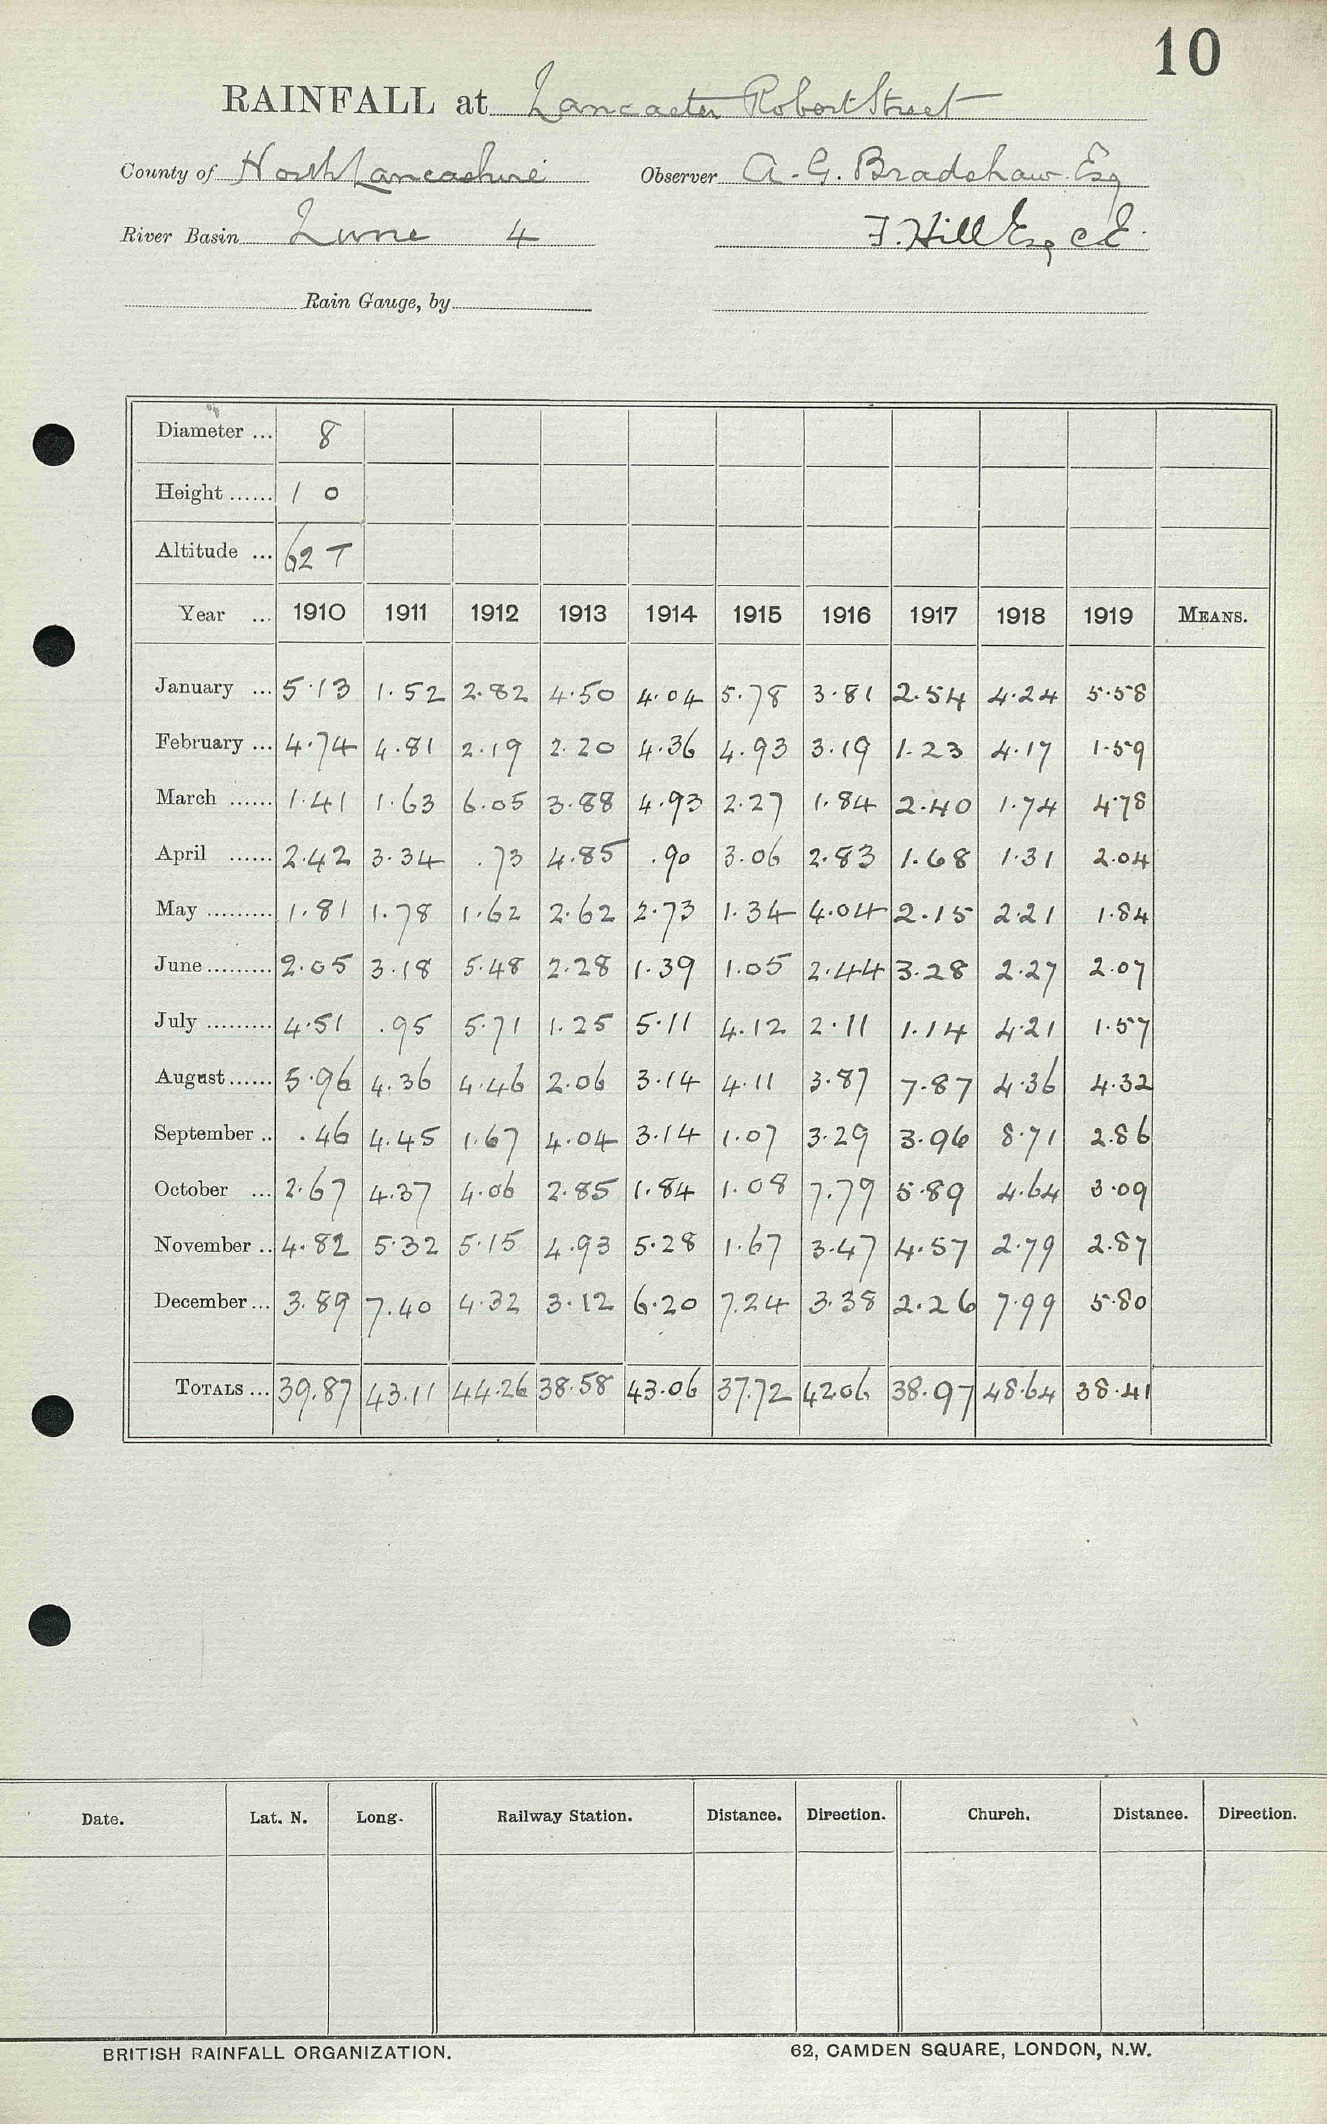 10
RAINFALL at Lancaster Robert Street
County of North Lancashire Observer A. G. Bradshaw Esq
River Basin Lune 4 F. Hill Esq C.E.
Rain Gauge, by
Diameter ... 8
Height ...... 1 0
Altitude ... 62 T
Year ... 1910 1911 1912 1913 1914 1915 1916 1917 1918 1919 MEANS.
January ... 5.13 1.52 2.82 4.50 4.04 5.78 3.81 2.54 4.24 5.58
February ... 4.74 4.81 2.19 2.20 4.36 4.93 3.19 1.23 4.17 1.59
March ...... 1.41 1.63 6.05 3.88 4.93 2.27 1.84 2.40 1.74 4.78
April ...... 2.42 3.34 .73 4.85 .90 3.06 2.83 1.68 1.31 2.04
May ......... 1.81 1.78 1.62 2.62 2.73 1.34 4.04 2.15 2.21 1.84
June ......... 2.05 3.18 5.48 2.28 1.39 1.05 2.44 3.28 2.27 2.07
July ......... 4.51 .95 5.71 1.25 5.11 4.12 2.11 1.14 4.21 1.57
August ...... 5.96 4.36 4.46 2.06 3.14 4.11 3.87 7.87 4.36 4.32
September .. .46 4.45 1.67 4.04 3.14 1.07 3.29 3.96 8.71 2.86
October ... 2.67 4.37 4.06 2.85 1.84 1.08 7.79 5.89 4.64 3.09
November .. 4.82 5.32 5.15 4.93 5.28 1.67 3.47 4.57 2.79 2.87
December ... 3.89 7.40 4.32 3.12 6.20 7.24 3.38 2.26 7.99 5.80
TOTALS ... 39.87 43.11 44.26 38.58 43.06 37.72 42.06 38.97 48.64 38.41
Date. Lat. N. Long. Railway Station. Distance. Direction. Church. Distance. Direction.
BRITISH RAINFALL ORGANIZATION. 62, CAMDEN SQUARE, LONDON, N.W.